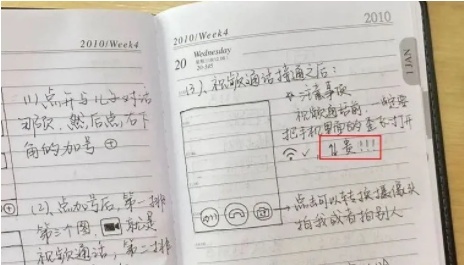 2010/Week4
(1) 点开与儿子对话
那页，然后点右下
角的加号 ⊕
(2) 点加号后，第一排
第三个图 就是
视频通话，第二排
2010/Week4
2010
20 Wednesday
20-345
1 JAN
(3)、视频通话接通之后：
注意事项
视频通话前，一定要
把手机里面的歪飞打开
!!!
点击可以转换摄像头
拍我或者拍别人